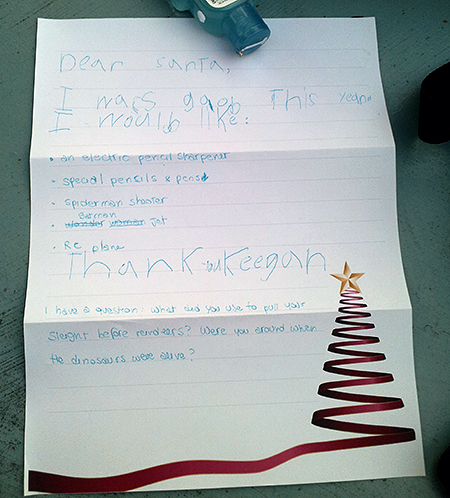 Dear santa,
I was goob This year
I would like:
• an electric pencil sharpener
• special pencils & pens
• spiderman shooter
Batman
• wonder woman Jet
• RC plane
Thank you Keegan
I have a question, what did you use to pull your
Sleight before reindeers? Were you around when
the dinosaurs were alive?